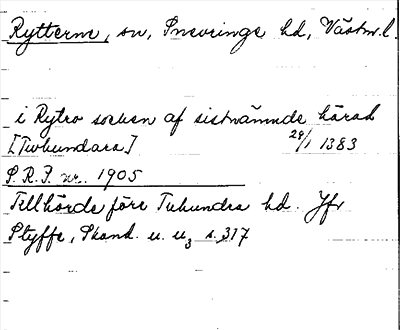 Rytterne, sn, Snevringe hd, Västm. l.
i Rytro socken af sistnämnde härad
[Twhundara] 29/1 1383
S.R.P. nr. 1905
Tillhörde förr Tuhundra hd. Jfr
Styffe, Skand. u. u3 s. 317